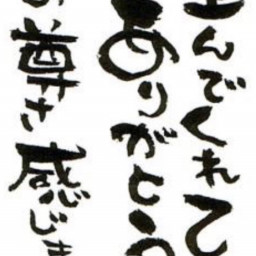 生んでくれて
ありがとう
尊さ感じま